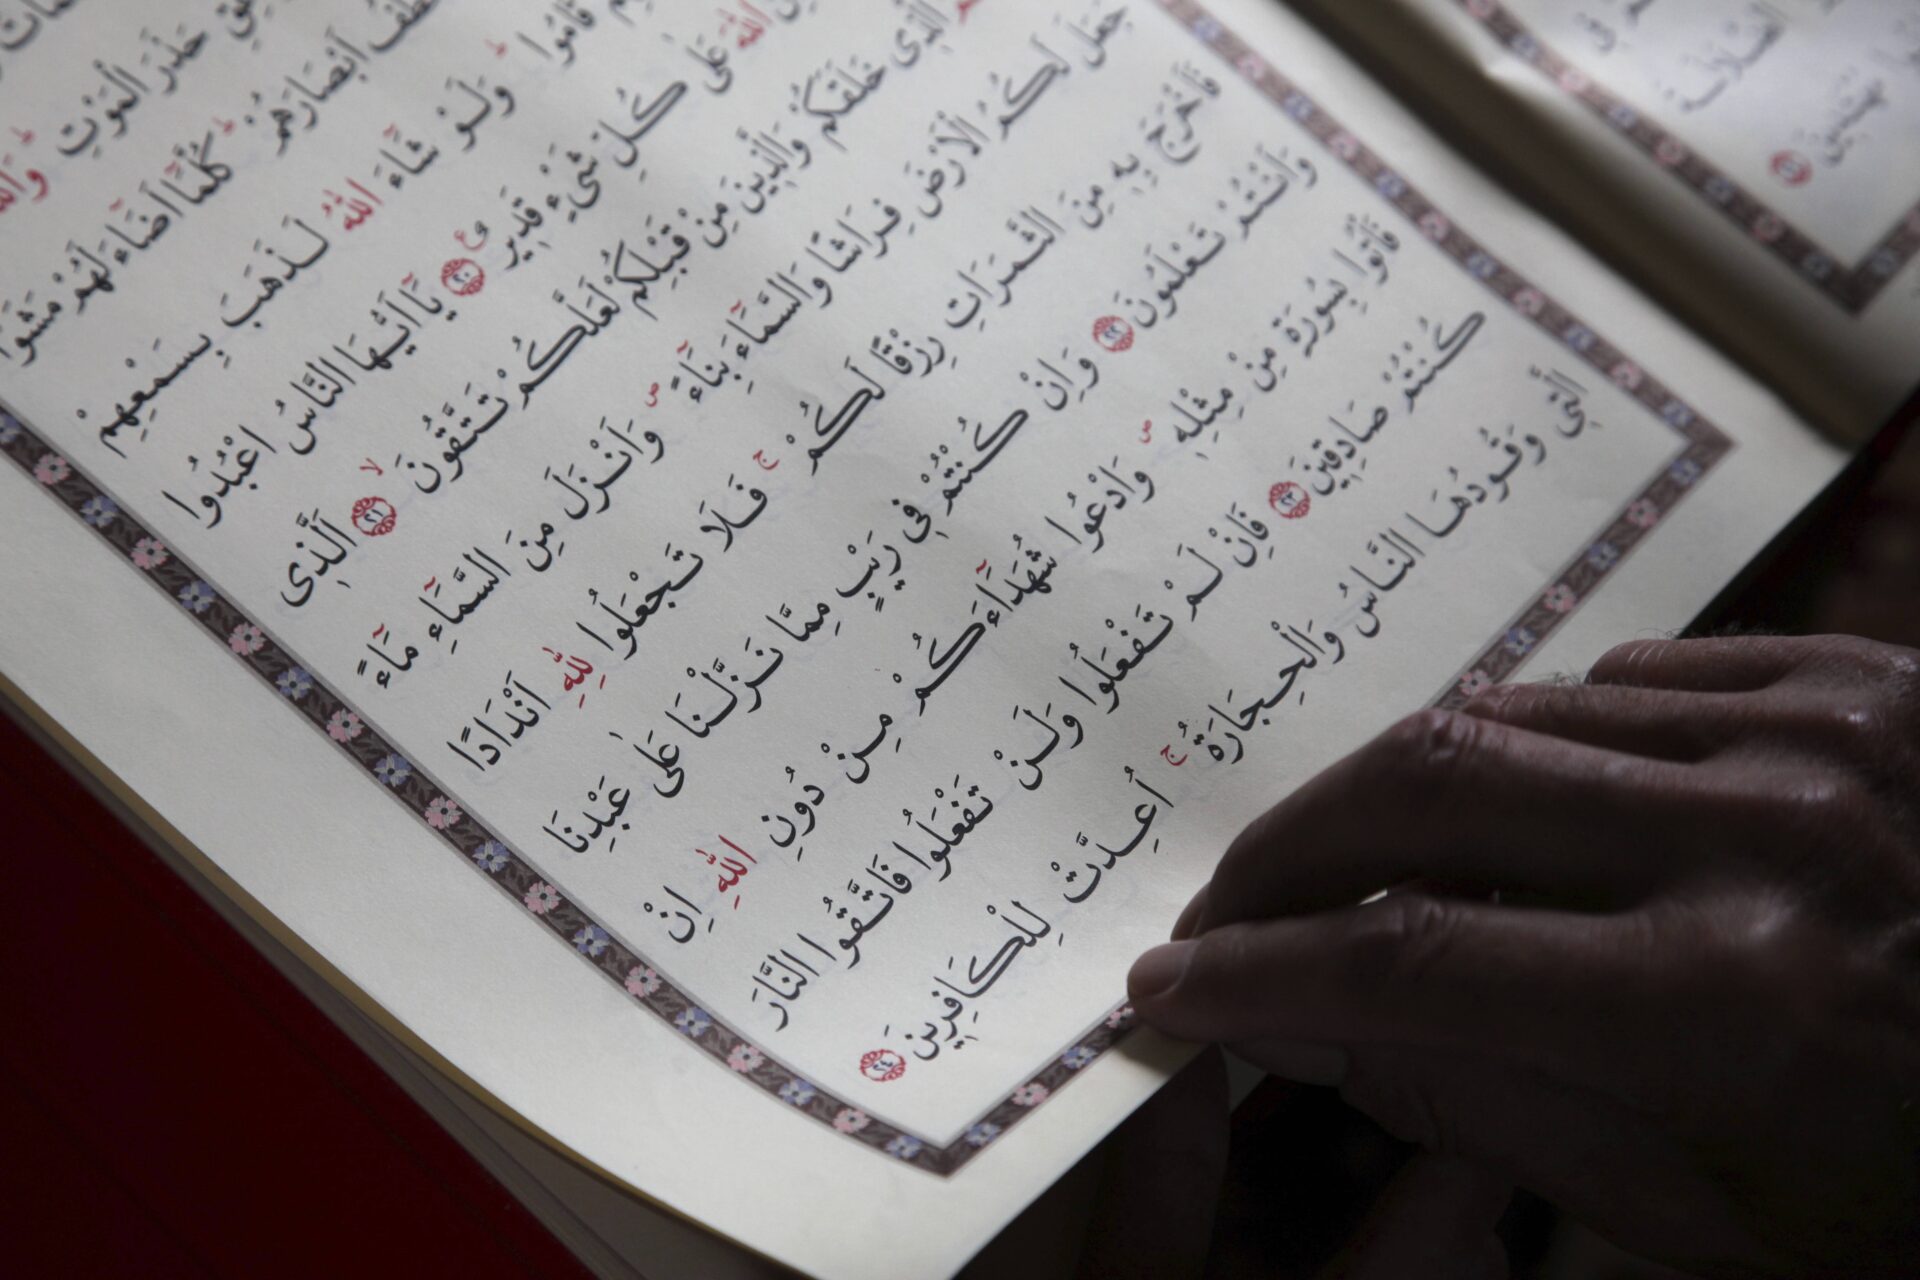 حَذَرَ الْمَوْتِ ط وَاللّٰهُ
اَبْصَارَهُمْ ط كُلَّمَٓا اَضَٓاءَ لَهُمْ مَشَوْا
قَامُوا ط وَلَوْ شَٓاءَ اللّٰهُ لَذَهَبَ بِسَمْعِهِمْ
اللّٰهَ عَلٰى كُلِّ شَیْءٍ قَدِيرٌ ٢٠ ع يَٓا اَيُّهَا النَّاسُ اعْبُدُوا
الَّذِى خَلَقَكُمْ وَالَّذِينَ مِنْ قَبْلِكُمْ لَعَلَّكُمْ تَتَّقُونَ ٢١ لا اَلَّذِى
جَعَلَ لَكُمُ الْاَرْضَ فِرَاشًا وَالسَّمَٓاءَ بِنَٓاءً ص وَاَنْزَلَ مِنَ السَّمَٓاءِ مَٓاءً
فَاَخْرَجَ بِهِ مِنَ الثَّمَرَاتِ رِزْقًا لَكُمْ ج فَلَا تَجْعَلُوا لِلّٰهِ اَنْدَادًا
وَاَنْتُمْ تَعْلَمُونَ ٢٢ وَاِنْ كُنْتُمْ فِي رَيْبٍ مِمَّا نَزَّلْنَا عَلٰى عَبْدِنَا
فَأْتُوا بِسُورَةٍ مِنْ مِثْلِهِ ص وَادْعُوا شُهَدَٓاءَكُمْ مِنْ دُونِ اللّٰهِ اِنْ
كُنْتُمْ صَادِقِينَ ٢٣ فَاِنْ لَمْ تَفْعَلُوا وَلَنْ تَفْعَلُوا فَاتَّقُوا النَّارَ
الَّتِي وَقُودُهَا النَّاسُ وَالْحِجَارَةُ ج اُعِدَّتْ لِلْكَافِرِينَ ٢٤